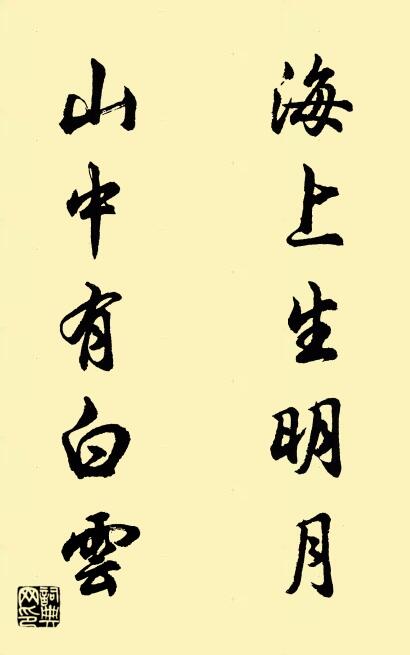 海上生明月
山中有白雲
詞典网印